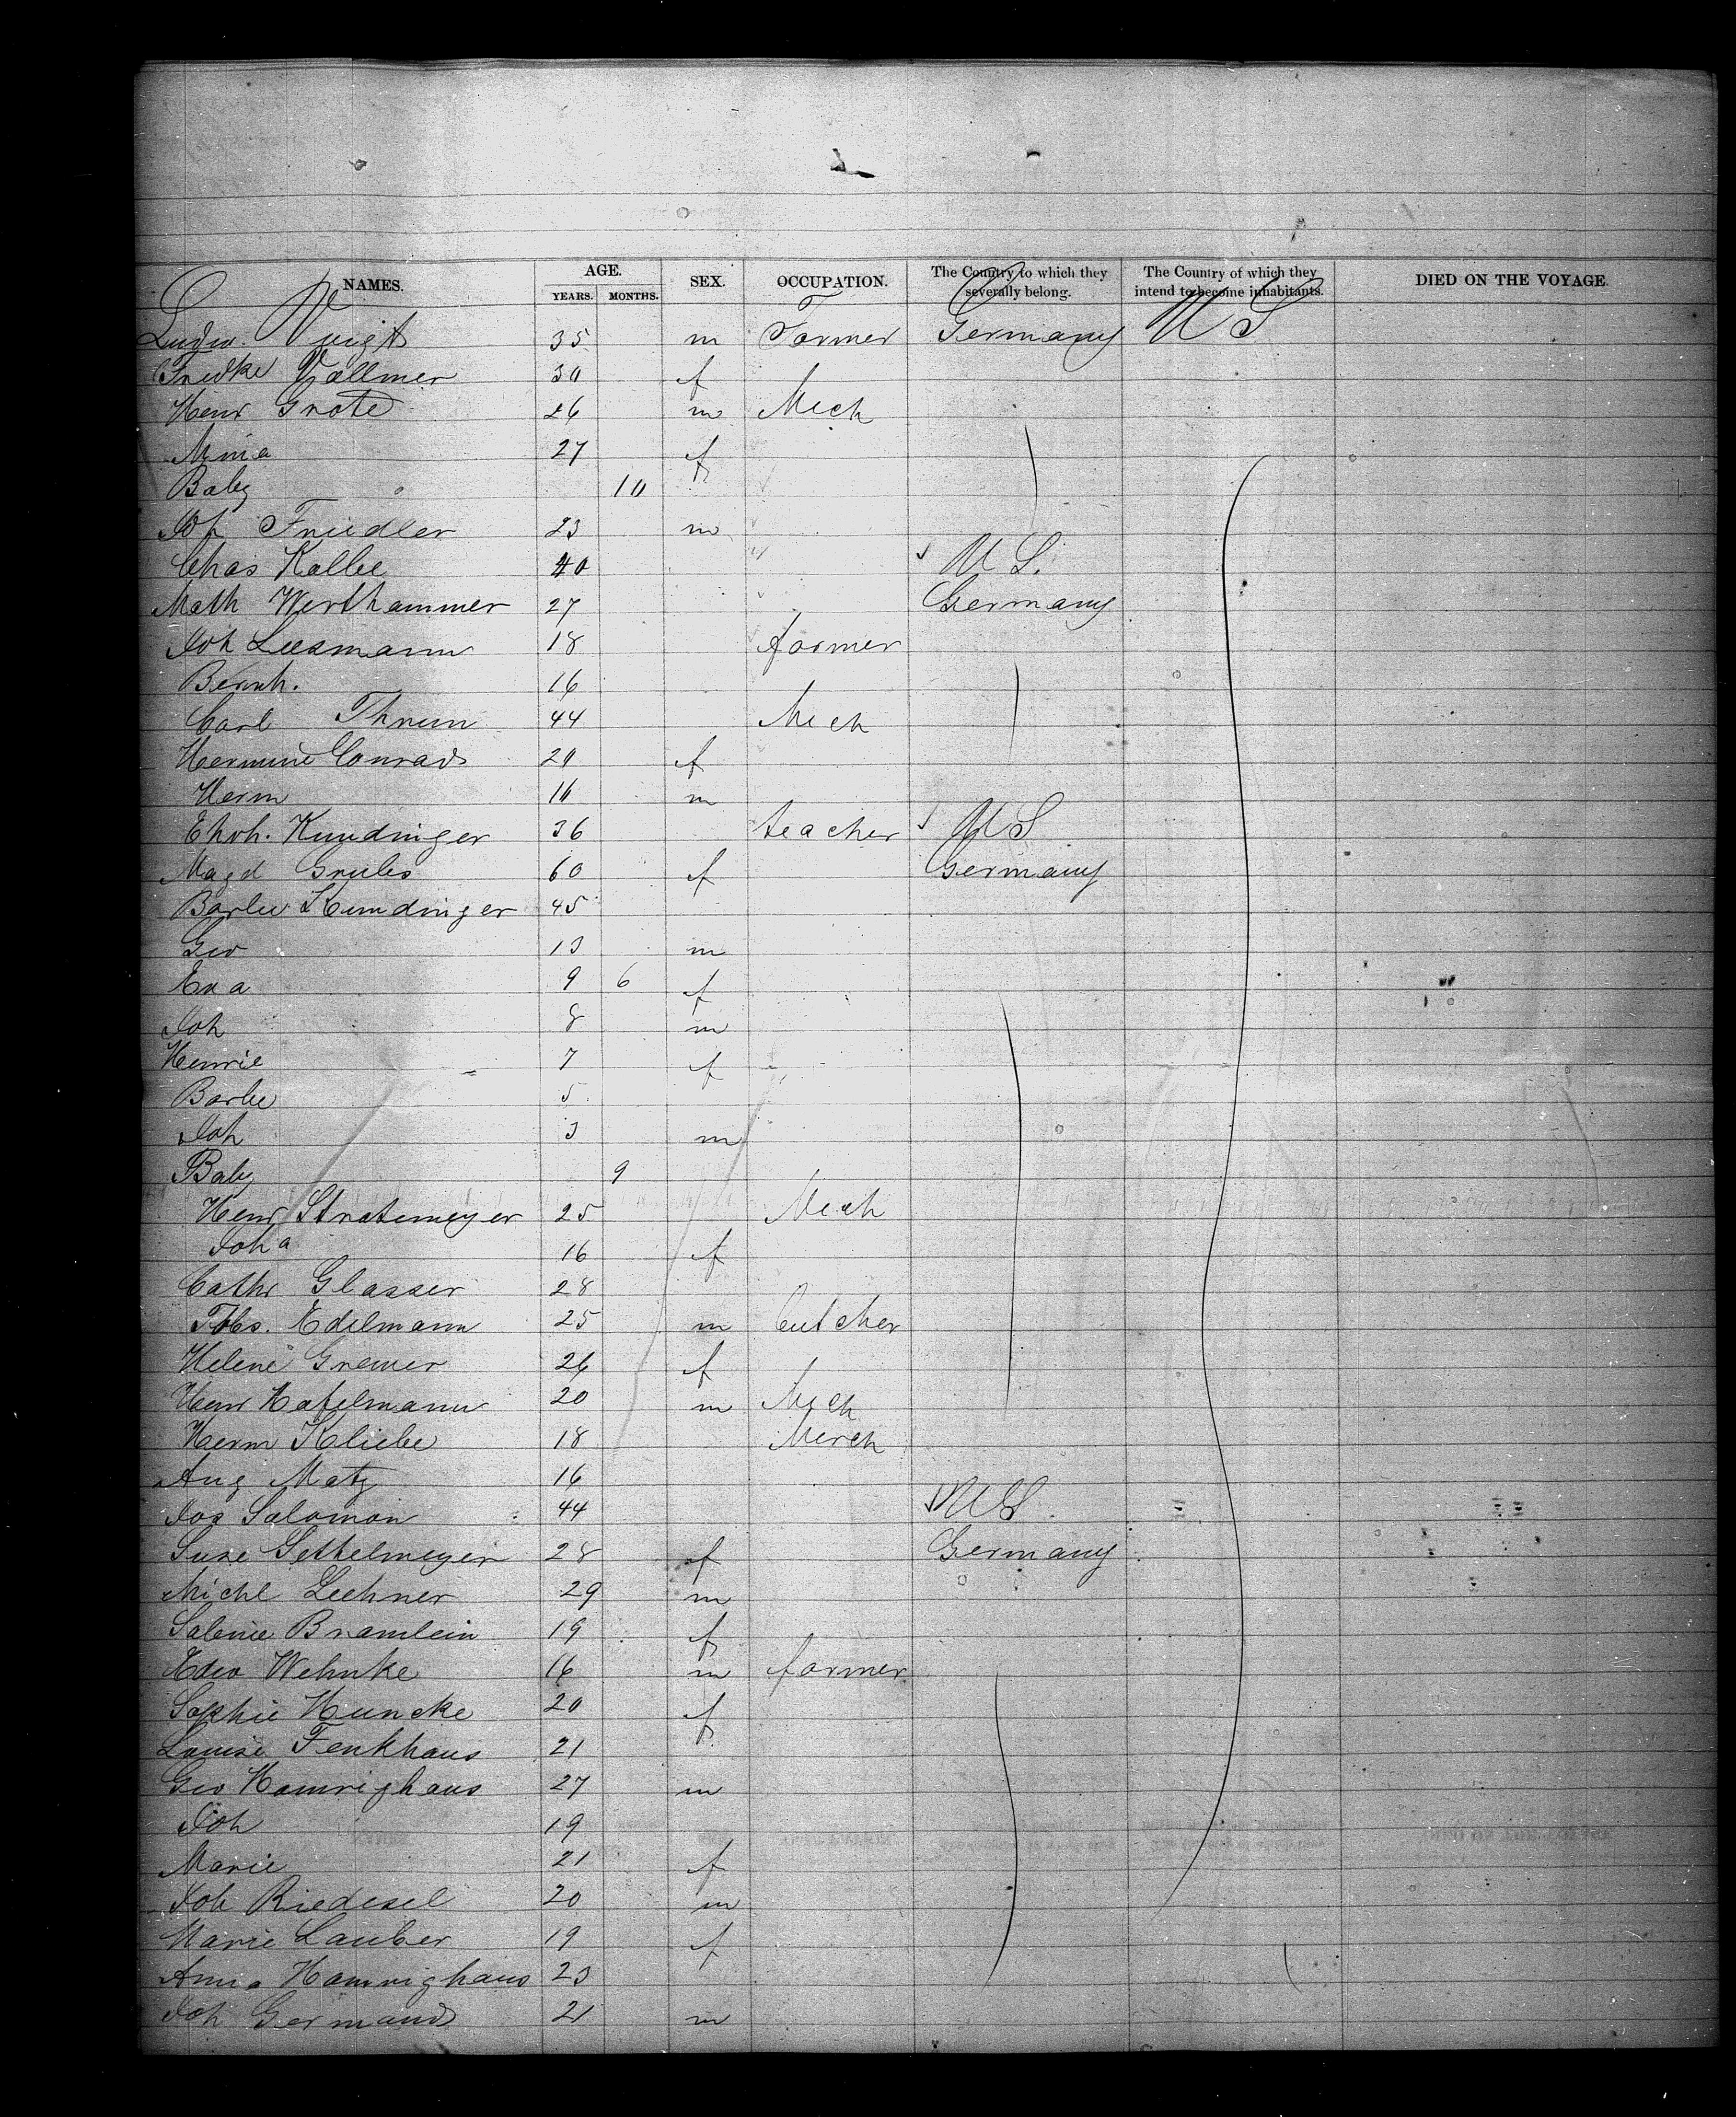 NAMES. AGE. SEX. OCCUPATION. The Country to which they severally belong. The Country of which they intend to become inhabitants. DIED ON THE VOYAGE.
YEARS. MONTHS.
Ludw. Voigt 35 m Farmer Germany U S
Friedke Vollmer 30 f
Henr Grote 26 m Mech
Mina 27 f
Baby 10
Friedler 23 m
Chas Kolbe 40 U S.
Math Werthammer 27 Germany
Joh Luesmann 18 farmer
Bernh. 16
Carl Thrun 44 Mech
Hermine Conrads 20 f
Herm m
Kundinger 36 teacher U S
Magd Grules 60 f Germany
Barbe Kundinger 45
Geo 13 m
Eva 9 6 f
Joh 8 m
Henrie 7 f
Barbe 5
Joh 3 m
Baby 9
Henr Stratemeyer 25 Mech
Joha 16 f
Cathr Glasser 28
Edelmann 25 m butcher
Helene Gremer 26 f
Henr Hafelmann 20 m Mech
Herm Kliebe 18 Merch
Aug Matz 16
Jos Salomon 44 U S
Suse Settelmeyer 28 f Germany
Michl Lechner 29 m
Sabine Bramlein 19 f
Wehnke 16 m farmer
Sophie Huncke 20 f
Louise Fenkhaus 21
Geo Hamrighaus 27 m
Joh 19
Marie 21 f
Joh Riedesel 20 m
Marie Lauber 19 f
Anna Hamrighaus 23
Joh Germand 21 m